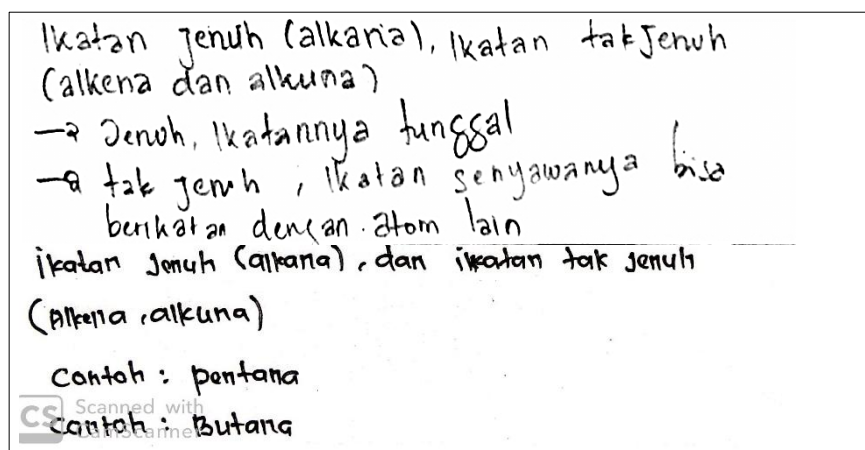 Ikatan Jenuh (alkana), Ikatan tak Jenuh
(alkena dan alkuna)
→ Jenuh, Ikatannya tunggal
→ tak jenuh, ikatan senyawanya bisa
berikatan dengan atom lain
ikatan Jenuh (alkana), dan ikatan tak jenuh
(Alkena, alkuna)
Contoh : pentana
CS Scanned with
Contoh : Butana
CamScanner